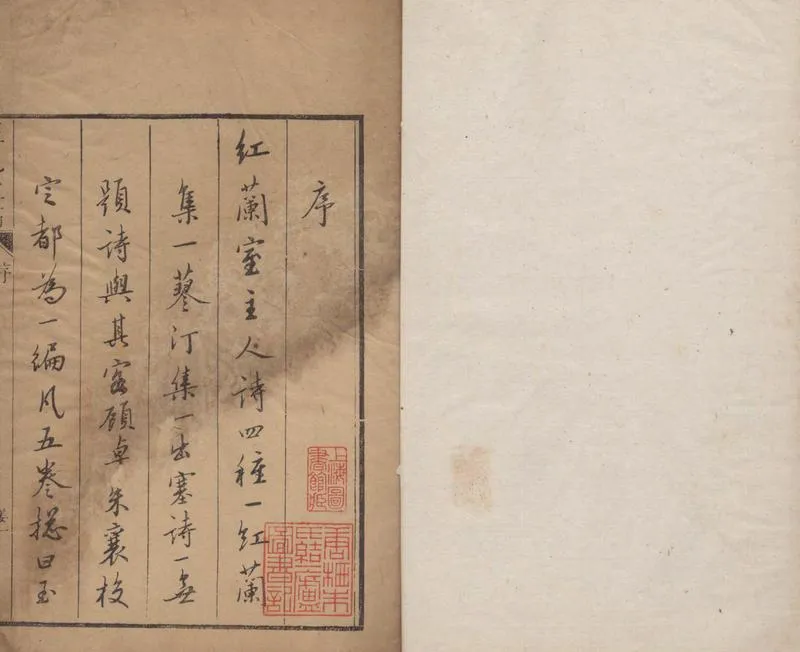 序
紅蘭室主人詩四種一紅蘭
集一蓼汀集一出塞詩一無
題詩與其客顧卓朱襄校
定都為一編凡五卷總曰玉
上海圖書館藏
唐栖朱氏結一廬圖書記
序